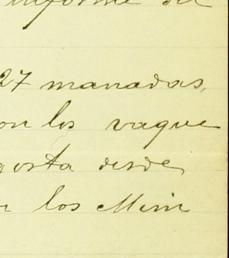 informe del
27 manadas,
on los vaque
gosta desde
los Mini